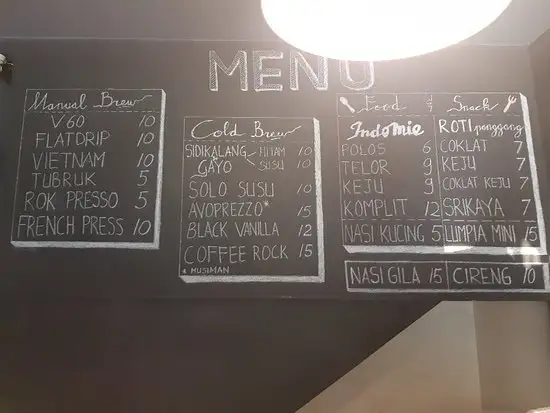 MENU
Manual Brew
V60 10
FLATDRIP 10
VIETNAM 10
TUBRUK 5
ROK PRESSO 5
FRENCH PRESS 10
Cold Brew
SIDIKALANG HITAM 10
GAYO SUSU 10
SOLO SUSU 10
AVOPREZZO* 15
BLACK VANILLA 12
COFFEE ROCK 15
* MUSIMAN
Food
Indomie
POLOS 6
TELOR 9
KEJU 9
KOMPLIT 12
NASI KUCING 5
Snack
ROTI panggang
COKLAT 7
KEJU 7
COKLAT KEJU 7
SRIKAYA 7
LUMPIA MINI 15
NASI GILA 15
CIRENG 10